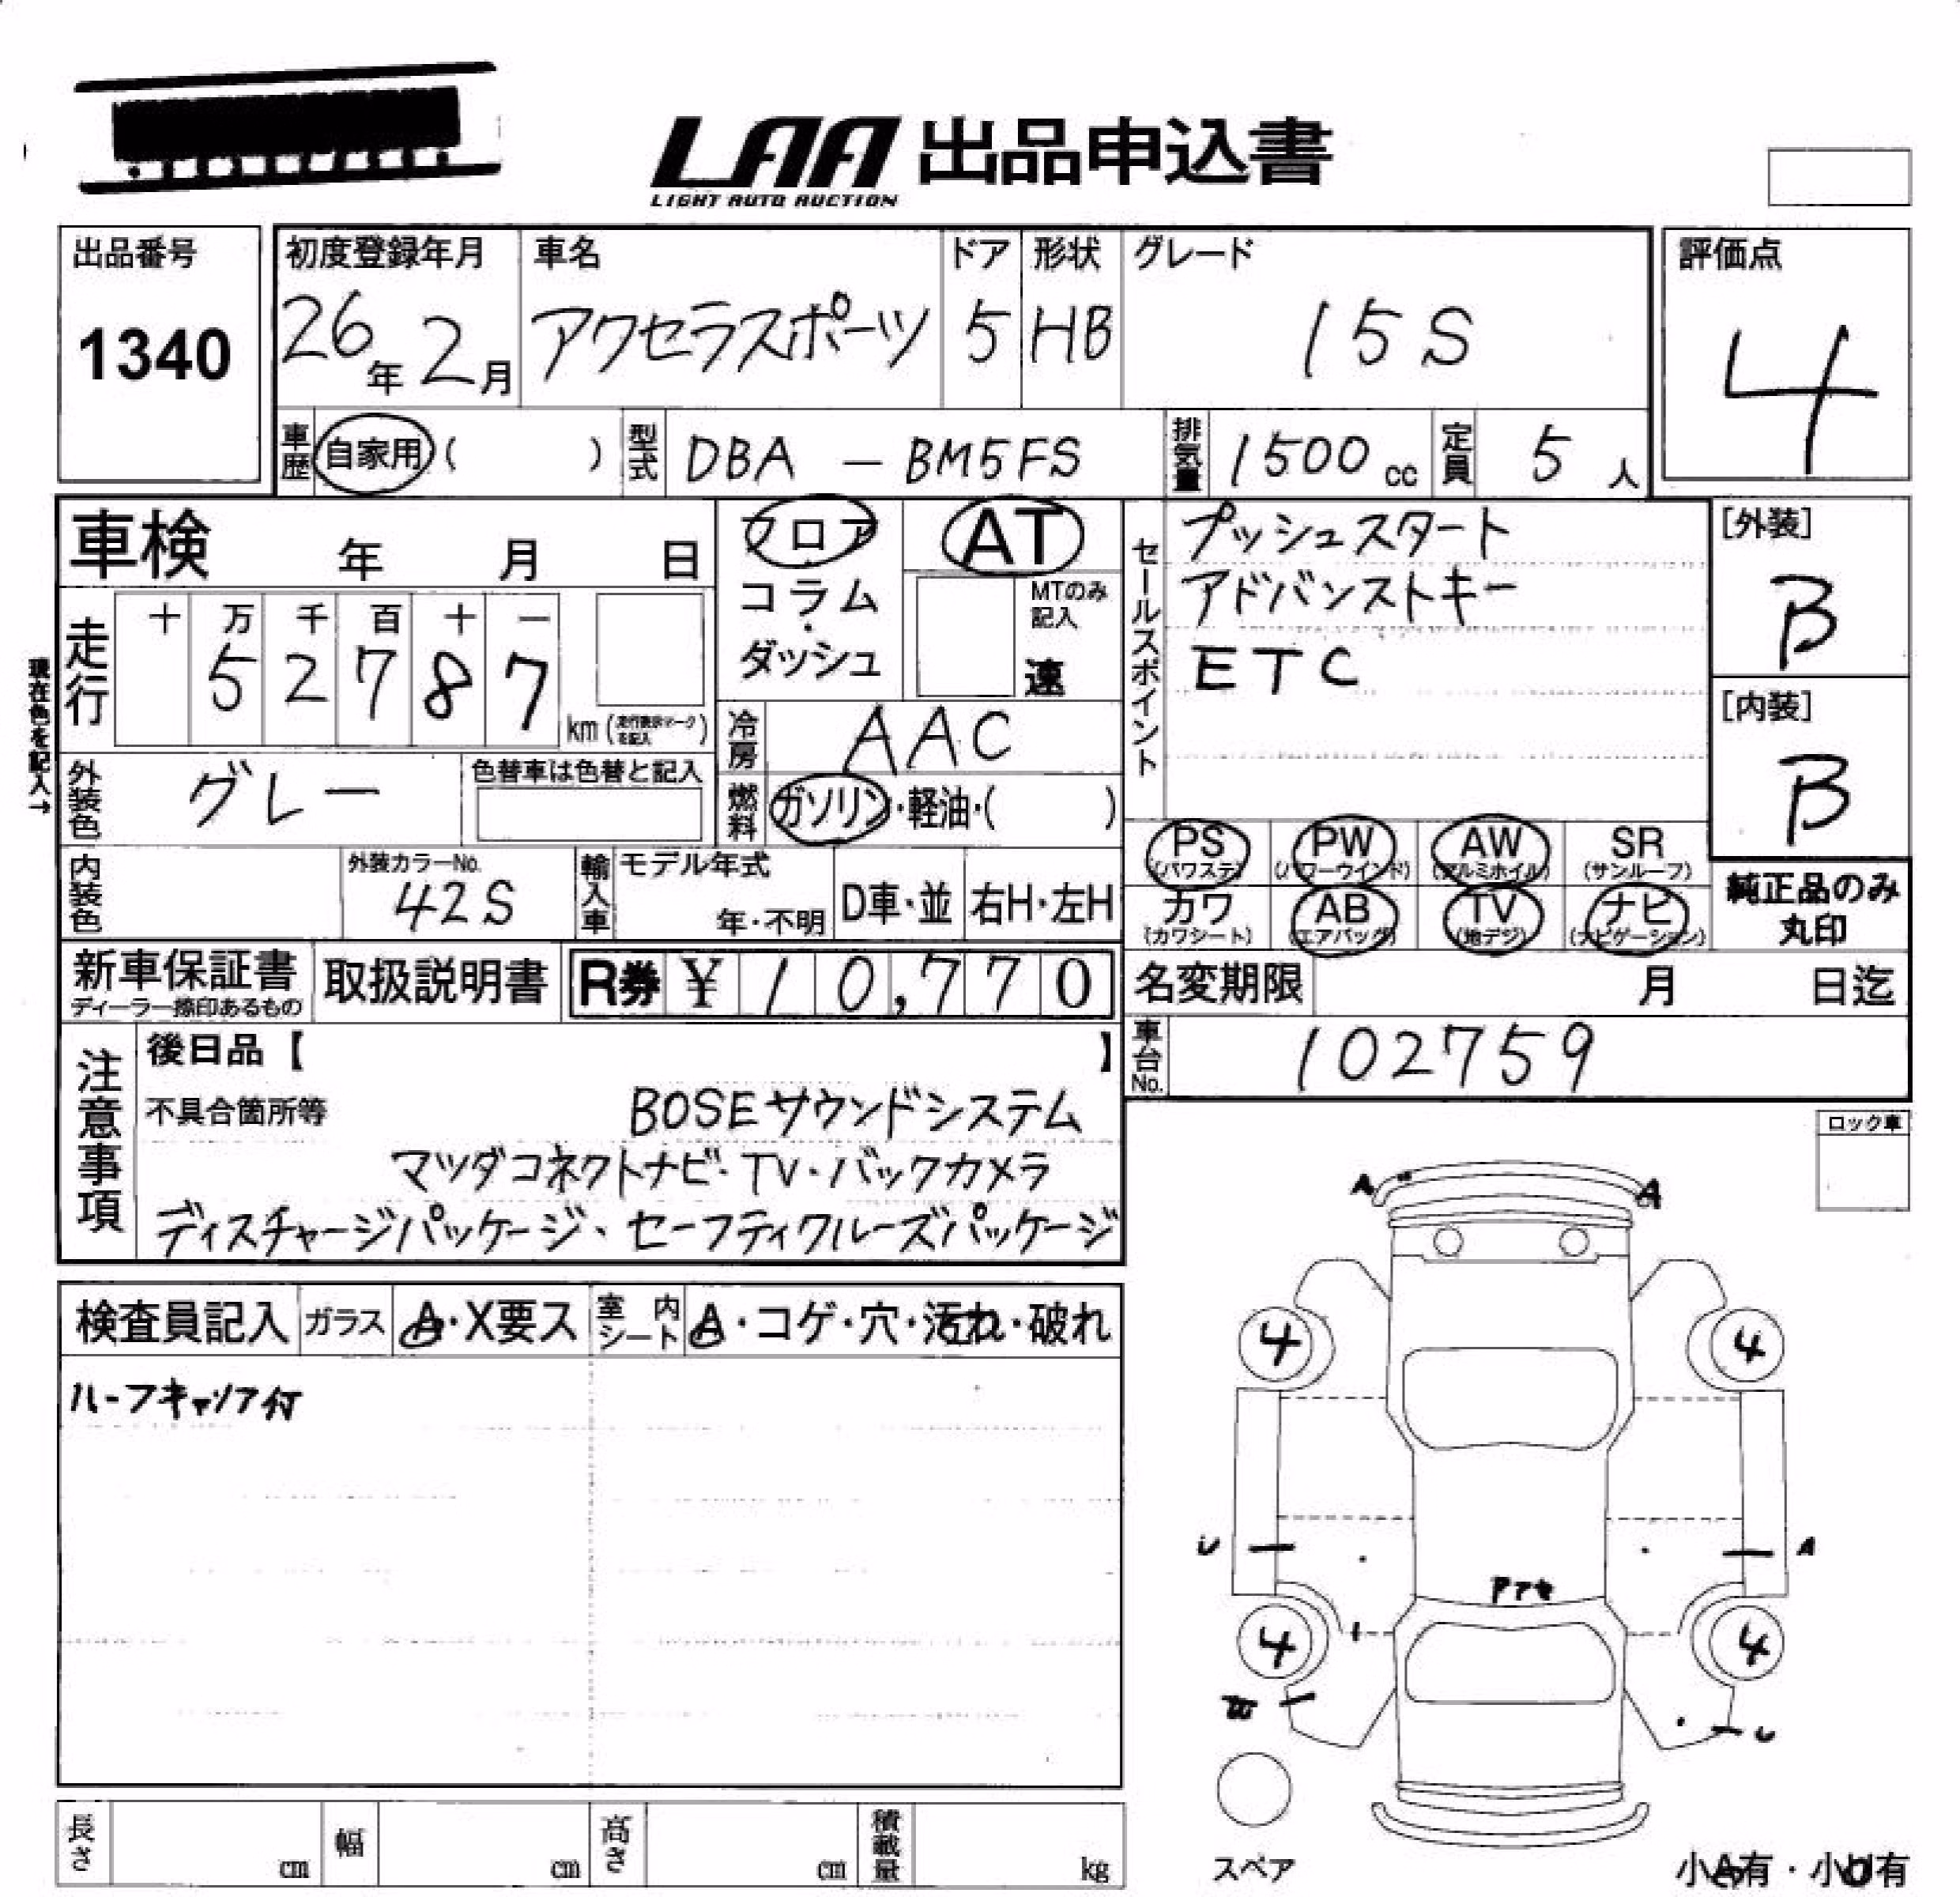 LAA 出品申込書
LIGHT AUTO AUCTION
出品番号
1340
初度登録年月
26年 2月
車名
アクセラスポーツ
ドア
5
形状
HB
グレード
15S
評価点
4
車歴 自家用 ( )
型式 DBA － BM5FS
排気量 1500 cc
定員 5 人
車検 年 月 日
フロア
コラム
・
ダッシュ
AT
MTのみ
記入
速
現在色を記入→
走行
十 万 千 百 十 一
5 2 7 8 7
km (走行表示マークを記入)
冷房 AAC
燃料 ガソリン・軽油・( )
外装色 グレー
色替車は色替と記入
内装色
外装カラーNo.
42S
輸入車
モデル年式
年・不明
D車・並
右H・左H
セールスポイント
プッシュスタート
アドバンストキー
ETC
[外装]
B
[内装]
B
PS (パワステ)
PW (パワーウインド)
AW (アルミホイル)
SR (サンルーフ)
カワ (カワシート)
AB (エアバッグ)
TV (地デジ)
ナビ (ナビゲーション)
純正品のみ
丸印
新車保証書
ディーラー捺印あるもの
取扱説明書
R券 ¥ 10,770
名変期限 月 日迄
車台No. 102759
注意事項
後日品【 】
不具合箇所等
BOSEサウンドシステム
マツダコネクトナビ・TV・バックカメラ
ディスチャージパッケージ、セーフティクルーズパッケージ
ロック車
検査員記入
ガラス A・X要ス
室内シート A・コゲ・穴・汚れ・破れ
ルーフキャリア付
A A
4 4
U A
アアセ
4 4
W U
スペア
小A有・小U有
長さ cm
幅 cm
高さ cm
積載量 kg